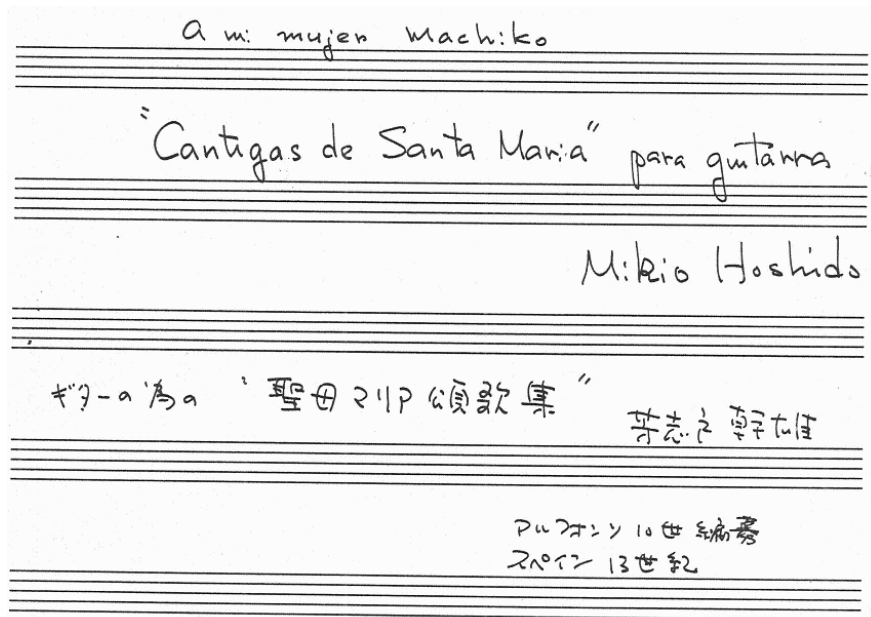 a mi mujer Machiko
"Cantigas de Santa Maria" para guitarra
Mikio Hoshido
ギターの為の "聖母マリア頌歌集"
志 幹雄
アルフォンソ10世編纂
スペイン 13世紀